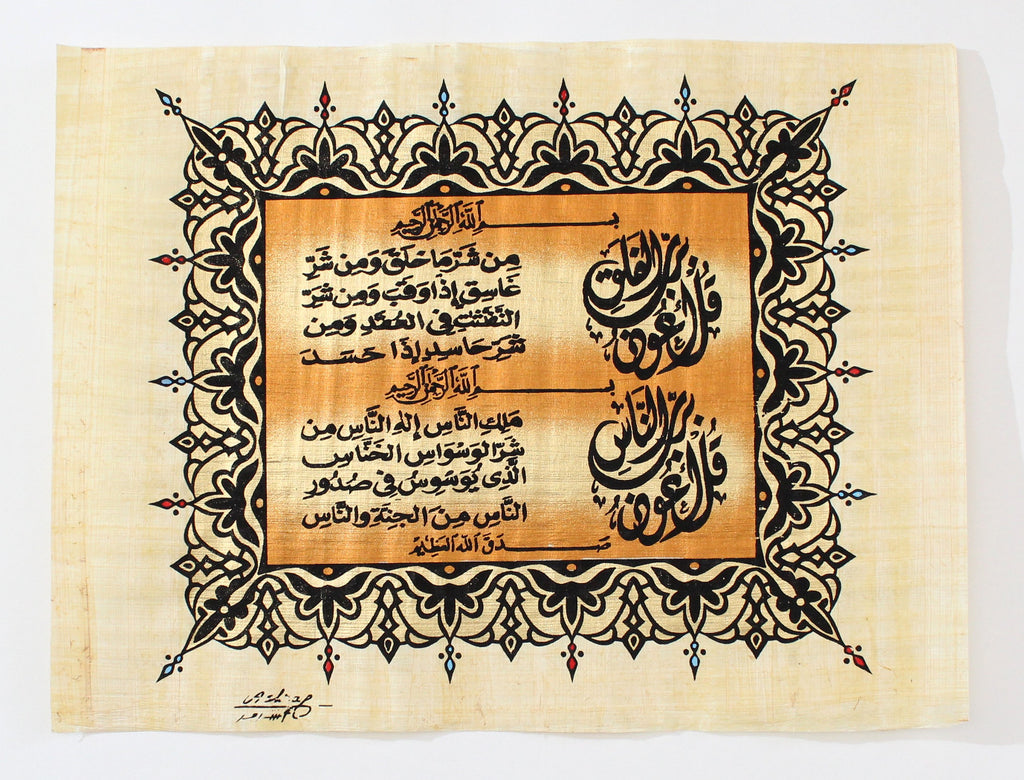 بسم الله الرحمن الرحيم
قل أعوذ برب الفلق
مِن شَرِّ مَا خَلَقَ وَمِن شَرِّ
غَاسِقٍ إِذَا وَقَبَ وَمِن شَرِّ
النَّفَّثَٰتِ فِي العُقَدِ وَمِن
شَرِّ حَاسِدٍ إِذَا حَسَدَ
بسم الله الرحمن الرحيم
قل أعوذ برب الناس
مَلِكِ النَّاسِ إِلَٰهِ النَّاسِ مِن
شَرِّ الوَسْوَاسِ الخَنَّاسِ
الَّذِي يُوَسْوِسُ فِي صُدُورِ
النَّاسِ مِنَ الجِنَّةِ وَالنَّاسِ
صدق الله العظيم